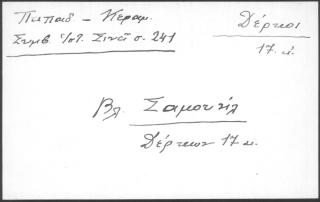 Παπαδ - Κεραμ.
Συμβ. Ἱστ. Σινᾶ σ. 241
Δέρκοι
17. αἰ.
Βλ. Σαμουήλ
Δέρκων 17 αἰ.